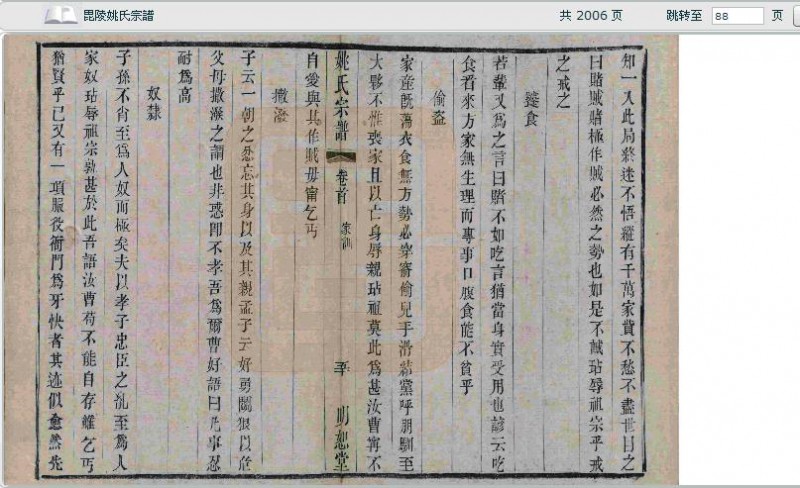 毘陵姚氏宗譜
共 2006 页
跳转至 88 页
知一入此局終迷不悟縱有千萬家貲不愁不盡世目之
曰賭賊賭極作賊必然之勢也如是不幾玷辱祖宗乎戒
之戒之
饕食
若輩又爲之言曰賭不如吃言猶當身實受用也諺云吃
食看來方家無生理而專事口腹食能不貧乎
偷盜
家產旣蕩衣食無方勢必穿窬偷兒手滑結黨呼朋馴至
大夥不惟喪家且以亡身辱親玷祖莫此爲甚汝曹寧不
自愛與其作賊毋甯乞丐
姚氏宗譜 卷首 家訓 明恕堂
撒潑
子云一朝之忿忘其身以及其親孟子云好勇鬬狠以危
父母撒潑之謂也非惑卽不孝吾爲爾曹好語曰凡事忍
耐爲高
奴隸
子孫不肖至爲人奴而極矣夫以孝子忠臣之裔至爲人
家奴玷辱祖宗孰甚於此吾語汝曹苟不能自存雖乞丐
猶賢乎已又有一項服役衙門爲牙快者其迹似愈然先